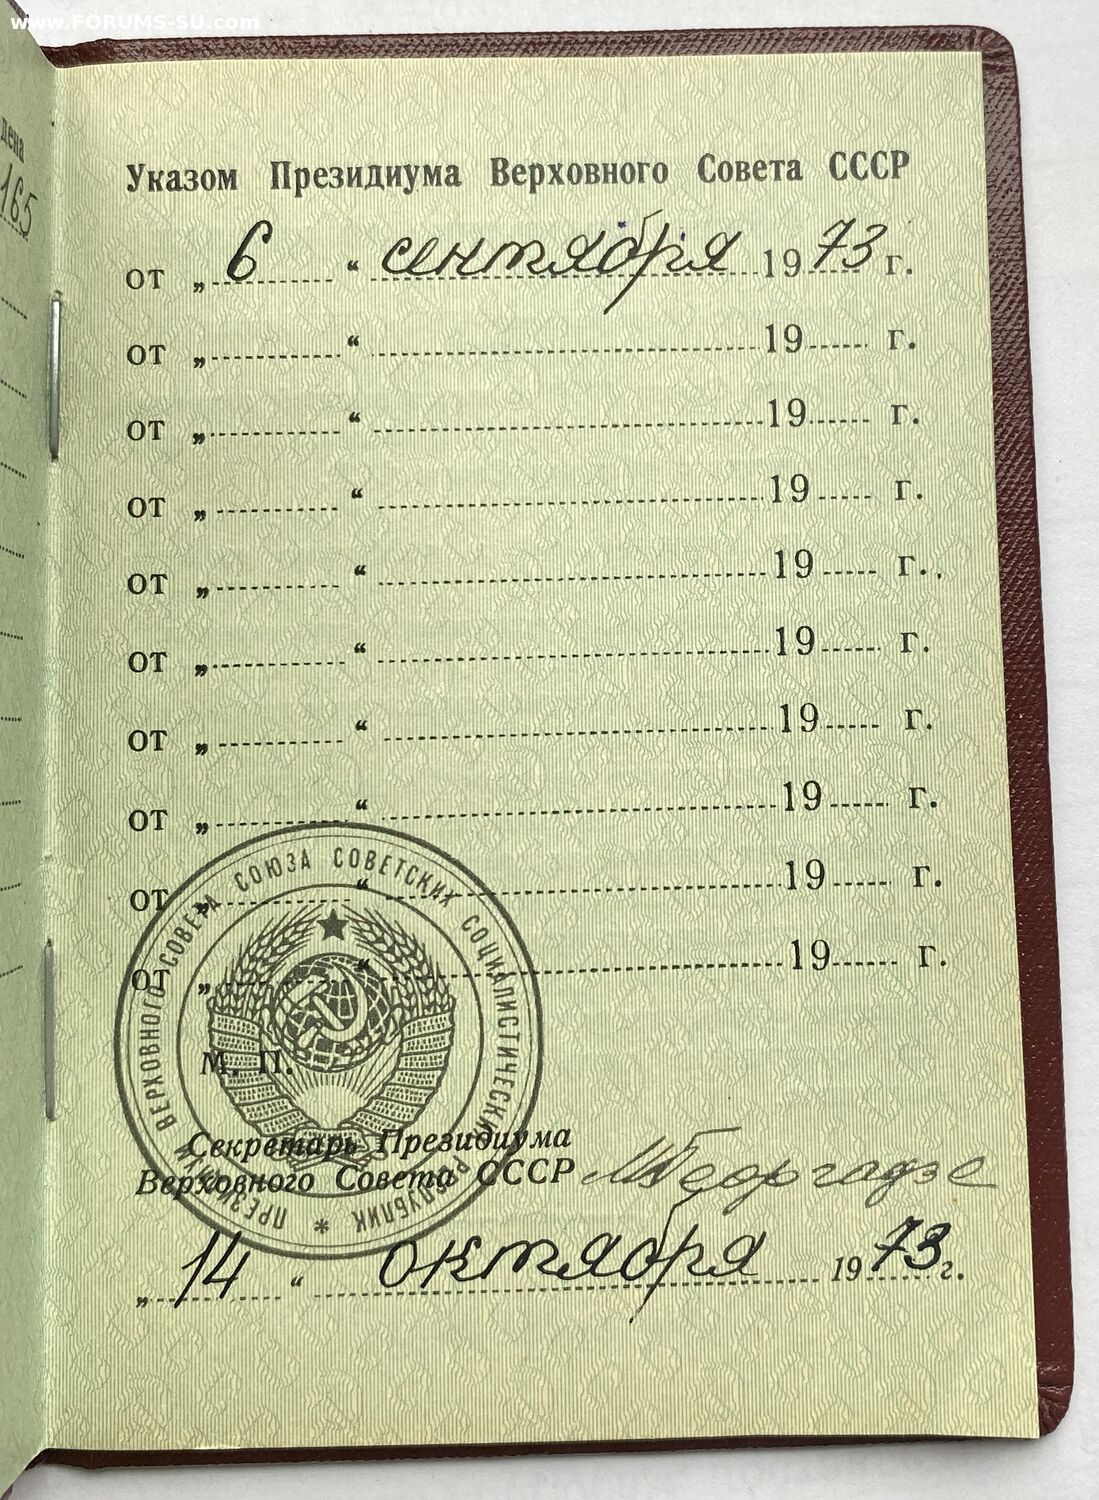 www.FORUMS-SU.com
дена
165
Указом Президиума Верховного Совета СССР
от „ 6 “ сентября 1973 г.
от „ “ 19 г.
от „ “ 19 г.
от „ “ 19 г.
от „ “ 19 г.
от „ “ 19 г.
от „ “ 19 г.
от „ “ 19 г.
от „ “ 19 г.
от „ “ 19 г.
ПРЕЗИДИУМ ВЕРХОВНОГО СОВЕТА СОЮЗА СОВЕТСКИХ СОЦИАЛИСТИЧЕСКИХ РЕСПУБЛИК *
М. П.
Секретарь Президиума
Верховного Совета СССР МГеоргадзе
„ 14 “ октября 1973 г.